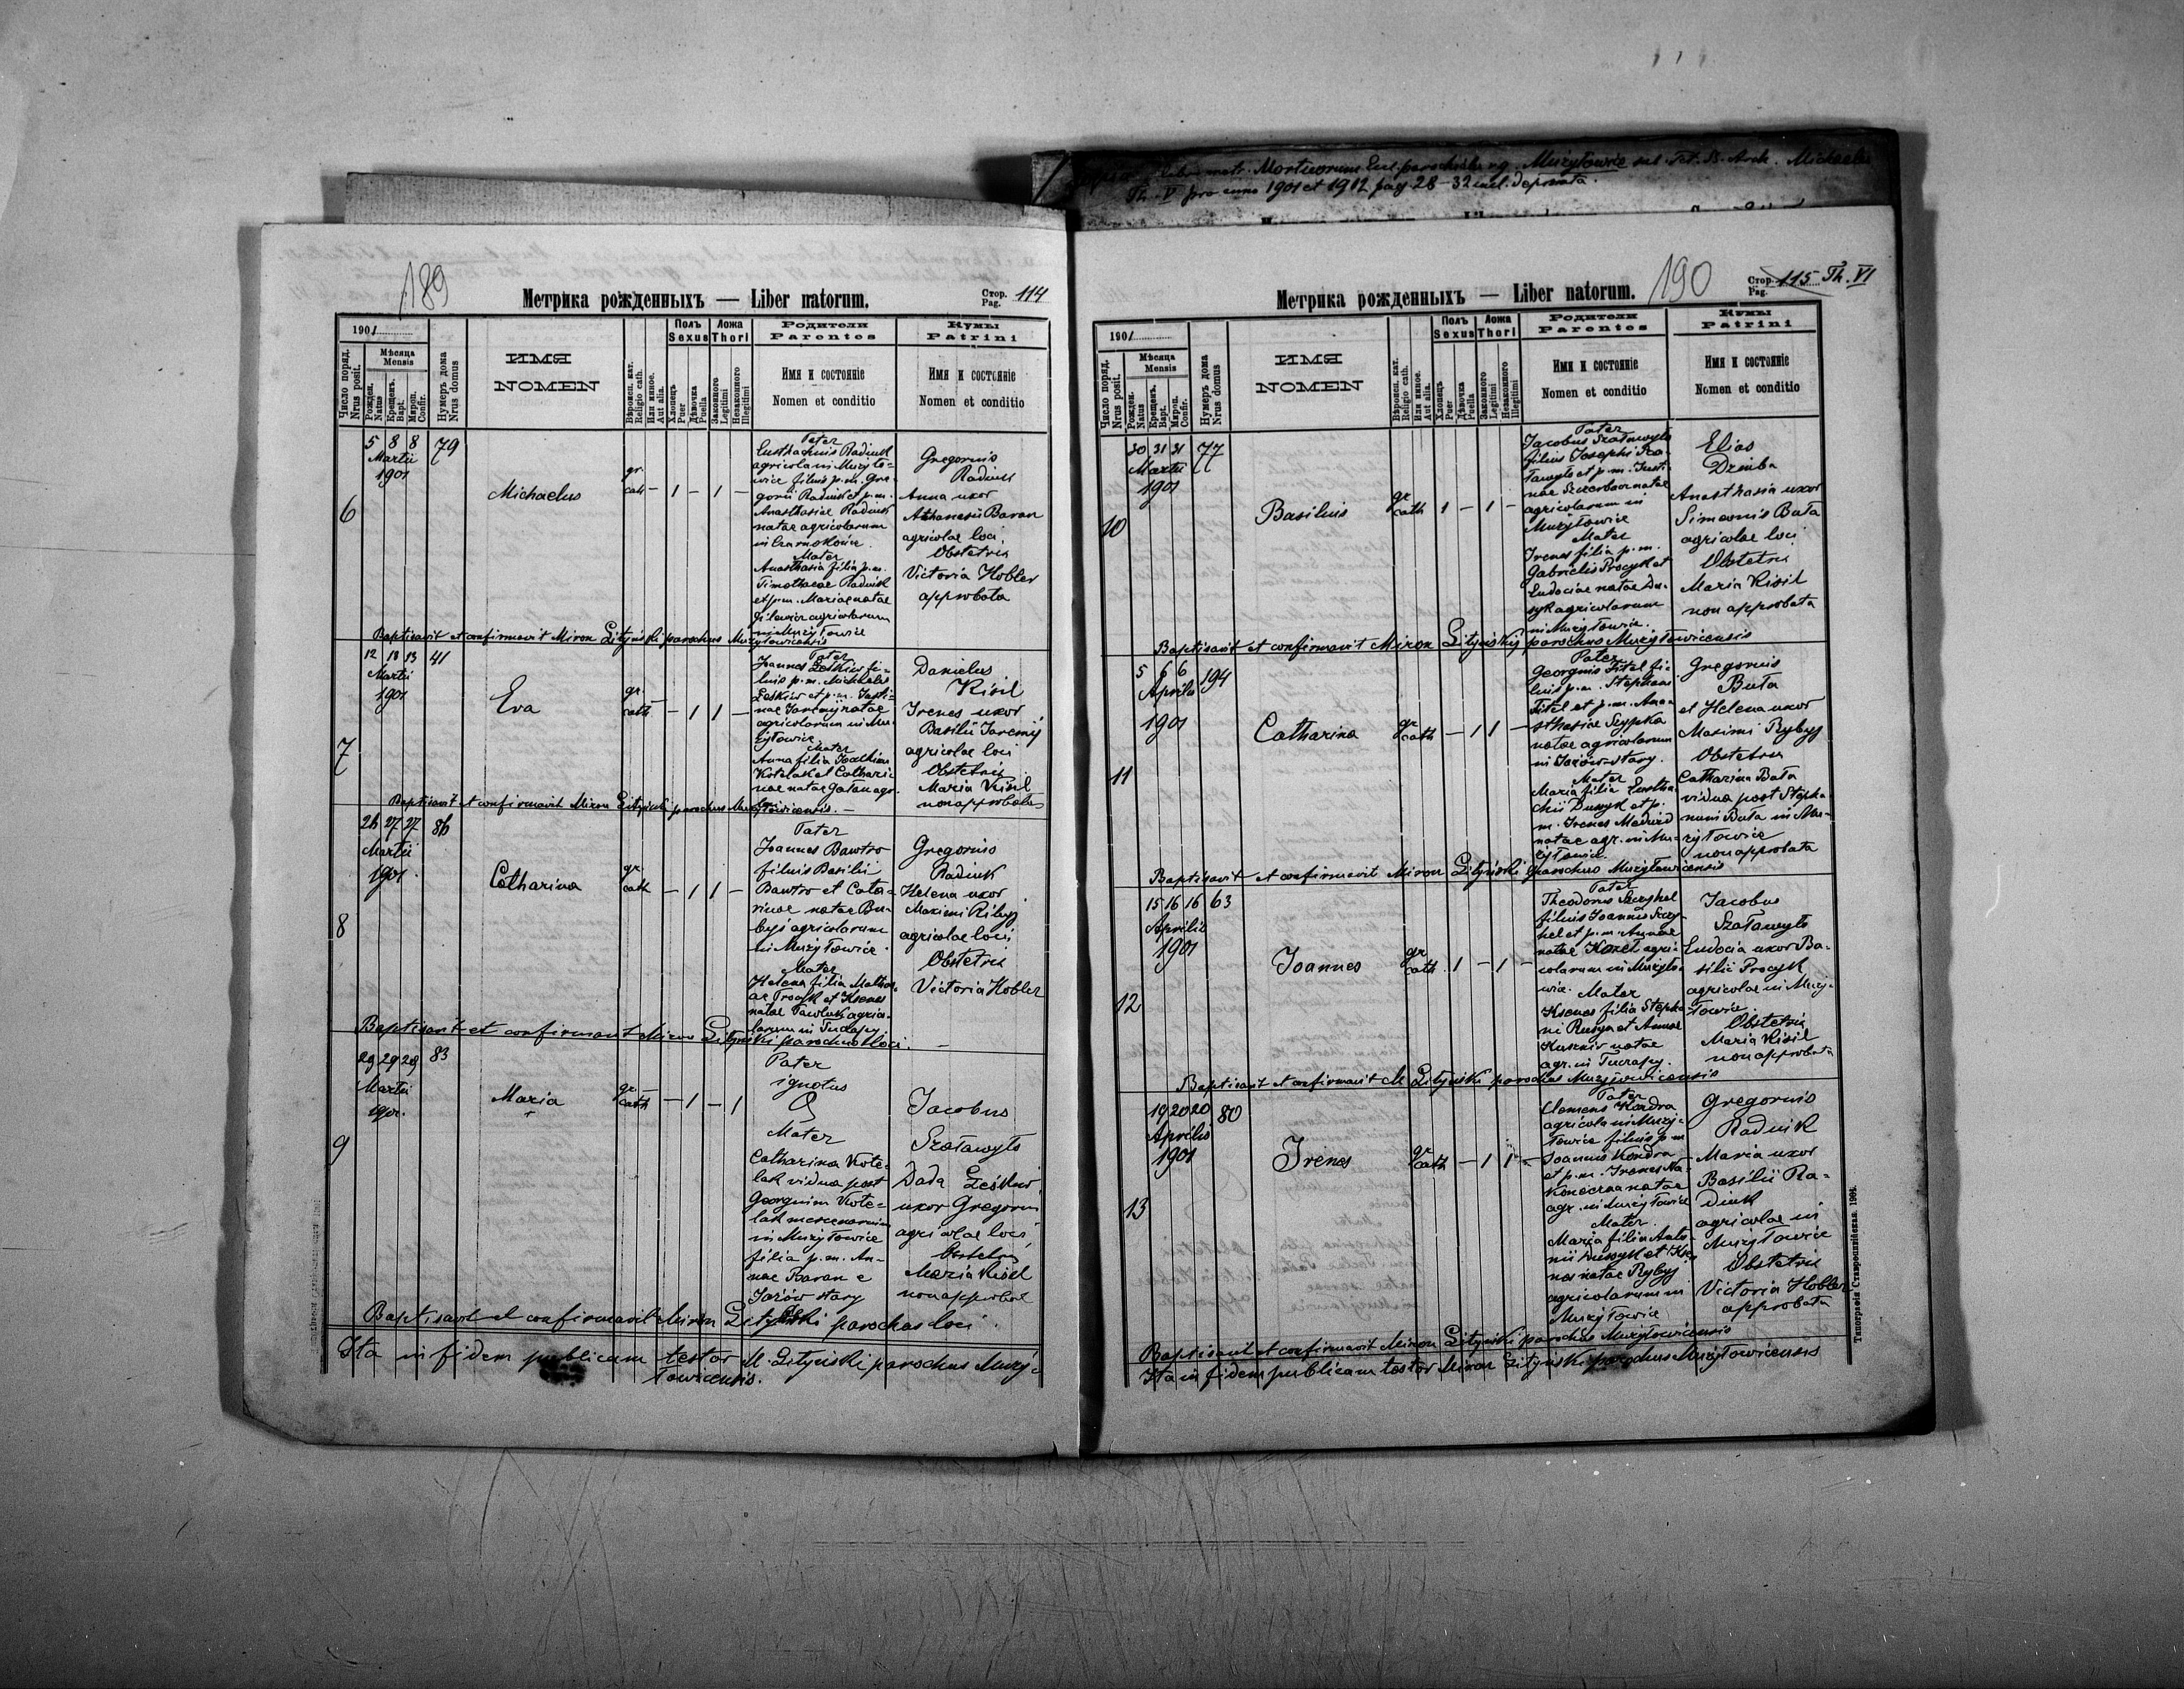 Liber metr. Mortuorum Eccl. parochialis rg. Mużyłowice sub. Tit. S. Arch. Michaelis
Th. V pro anno 1901 et 1912 pag. 28-32 incl. deprompta.
189
Метрика рожденныхъ — Liber natorum.
Стор. Pag. 114
1901
Число поряд. Nrus posit.
Мѣсяца Mensis
Рожден. Natus
Крещенъ. Bapt.
Мѵроп. Confir.
Нумеръ дома Nrus domus
ИМЯ
NOMEN
Вѣроисп. кат. Religio cath.
Или инное. Aut alia.
Полъ Sexus
Хлопецъ Puer
Дѣвочка Puella
Ложа Thori
Законного Legitimi
Незаконного Illegitimi
Родители
Parentes
Имя и состоянiе
Nomen et conditio
Кумы
Patrini
Имя и состоянiе
Nomen et conditio
6
5 8 8
Martii
1901
79
Michaelus
gr. cath - 1 - 1 -
Pater
Eusthachius Radiuk
agricola in Mużyło-
wice filius p.m. Gre-
gorii Radiuk et p.m.
Anasthasiae Radiuk
natae agricolarum
in Czarnokońce.
Mater
Anasthasia filia p.m.
Timotheae Radiuk
et p.m. Mariae natae
agricolarum
in Mużyłowice
Gregorius
Radiuk
Anna uxor
Athanasii Baran
agricolae loci.
Obstetrix
Victoria Hobler
approbata
Baptisavit et confirmavit Miron Lityński parochus Mużyłowicensis
7
12 13 13
Martii
1901
41
Eva
gr. cath - 1 1 -
Pater
Joannes Leśkiw fi-
lius p.m. Michaelis
Leskiw et p.m. Justi-
nae Jaremij natae
agricolarum in Mu-
żyłowice.
Mater
Anna filia Joachim
Kotelak et Cathari-
nae natae Gatan agr.
loci
Danielus
Kisil
Irenes uxor
Basilii Jaremij
agricolae loci
Obstetrix
Maria Kisil
non approbata
Baptisavit et confirmavit Miron Lityński parochus Mużyłowicensis. —
8
26 27 27
Martii
1901
86
Catharina
gr. cath - 1 1 -
Pater
Joannes Bawtro
filius Basilii
Bawtro et Cata-
rinae natae Bu-
byś agricolarum
in Mużyłowice.
Mater
Helena filia Matthe-
ae Procyk et Ksenes
natae Pawluk agrico-
larum in Tuczapy.
Gregorius
Radiuk
Helena uxor
Maximi Ribyj
agricolae loci
Obstetrix
Victoria Hobler
Baptisavit et confirmavit Miron Lityński parochus loci. —
9
29 29 29
Martii
1901.
83
Maria
+
gr. cath - 1 - 1
Pater
ignotus
Mater
Catharina Kote-
lak vidua post
Georgium Kote-
lak mercenarium
in Mużyłowice
filia p.m. An-
nae Baran e
Jazów stary
Jacobus
Szaławyło
Dada Leśkiw
uxor Gregorii
agricolae loci
Obstetrix
Maria Kisil
non approbat
Baptisavit et confirmavit Miron Lityński parochus loci.
Ita in fidem publicam testor M. Lityński parochus Muży-
łowicensis.
190
Метрика рожденныхъ — Liber natorum.
Стор. Pag. 115 Th. VI
1901
Число поряд. Nrus posit.
Мѣсяца Mensis
Рожден. Natus
Крещенъ. Bapt.
Мѵроп. Confir.
Нумеръ дома Nrus domus
ИМЯ
NOMEN
Вѣроисп. кат. Religio cath.
Или инное. Aut alia.
Полъ Sexus
Хлопецъ Puer
Дѣвочка Puella
Ложа Thori
Законного Legitimi
Незаконного Illegitimi
Родители
Parentes
Имя и состоянiе
Nomen et conditio
Кумы
Patrini
Имя и состоянiе
Nomen et conditio
10
30 31 31
Martii
1901
77
Basilius
gr cath 1 - 1 -
Pater
Jacobus Szaławyło
filius Josephi Sza-
ławyło et p.m. Justi-
nae Szczerba natae
agricolarum in
Mużyłowice
Mater
Irenes filia p.m.
Gabrielis Procyk et
Eudociae natae Du-
syk agricolarum
in Mużyłowice.
Elias
Dziuba
Anasthasia uxor
Simeonis Buła
agricolae loci
Obstetrix
Maria Kisil
non approbata
Baptisavit et confirmavit Miron Lityńskij parochus Mużyłowicensis
11
5 6 6
Aprilis
1901
194
Catharina
gr cath - 1 1 -
Pater
Georgius Fitel fi-
lius p.m. Stephani
Fitel et p.m. Ana-
sthasiae Szypka
natae agricolarum
in Jazów stary.
Mater
Maria filia Eustha-
chii Dussyk et p.
m. Irenes Medwid
natae agr. in Mu-
żyłowice.
Gregorius
Buła
et Helena uxor
Maximi Rybyj
Obstetrix
Catharina Buła
vidua post Stepha-
num Buła in Mu-
żyłowice
non approbata
Baptisavit et confirmavit Miron Lityński parochus Mużyłowicensis
12
15 16 16
Aprilis
1901
63
Joannes
gr cath. 1 - 1 -
Pater
Theodorus Szczyhel
filius Joannis Szczy-
hel et p.m. Annae
natae Korel agri-
colarum in Mużyło-
wice. Mater
Ksenes filia Stepha-
ni Rusyn et Annae
Kuzniv natae
agr. in Tuczapy.
Jacobus
Szaławyło
Eudocia uxor Ba-
silii Procyk
agricolae in Muży-
łowice.
Obstetrix
Maria Kisil
non approbata
Baptisavit et confirmavit M Lityński parochus Mużyłowicensis
13
19 20 20
Aprilis
1901
80
Irenes
gr cath - 1 1 -
Pater
Clemens Kondra
agricola in Muży-
łowice filius p.m
Joannis Kondra
et p.m. Irenes Na-
koneczna natae
agr. in Mużyłowice
Mater.
Maria filia Anto-
nii Dussyk et Kse-
nes natae Rybyj
agricolarum in
Mużyłowice
Gregorius
Radiuk
Maria uxor
Basilii Ra-
diuk
agricolae in
Mużyłowice
Obstetrix
Victoria Hobler
approbata
Baptisavit et confirmavit Miron Lityński parochus Mużyłowicensis
Ita in fidem publicam testor Miron Lityński parochus Mużyłowicensis
Типографiя Ставропигiйская. 1901.